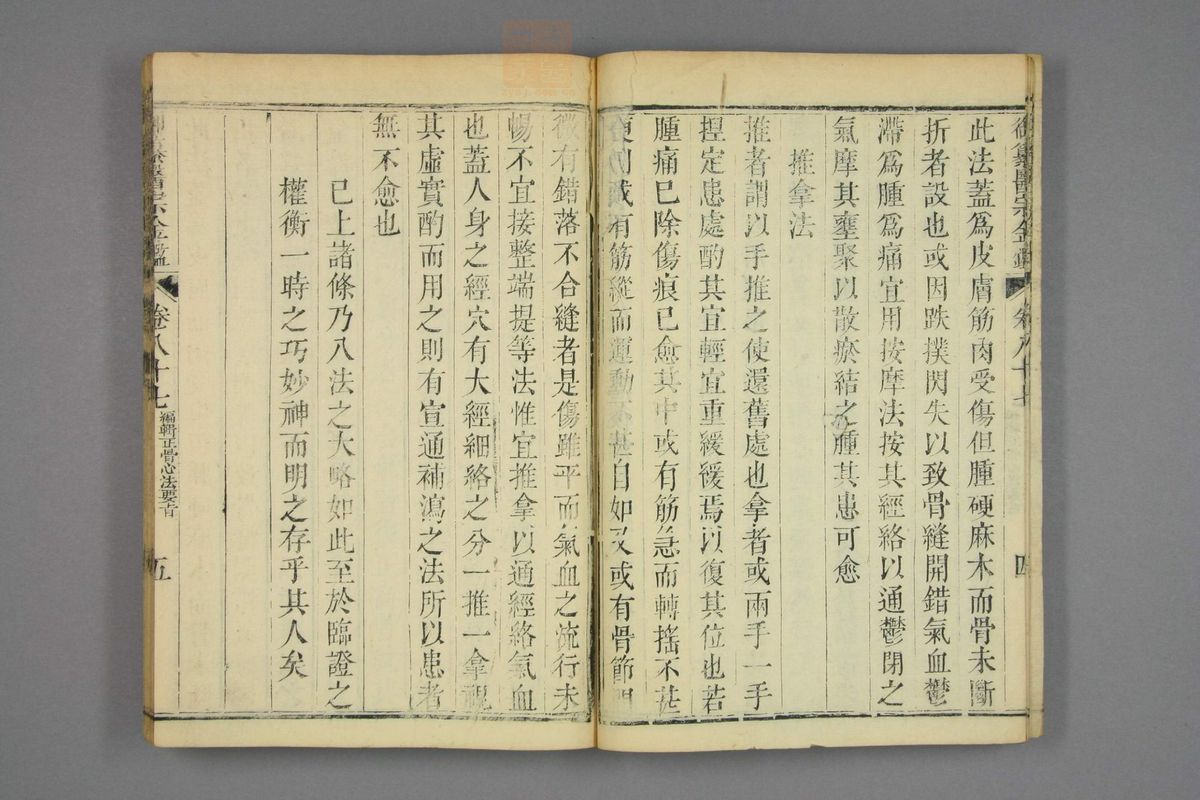 御纂醫宗金鑑 卷八十七 四
此法蓋爲皮膚筋肉受傷但腫硬麻木而骨未斷
折者設也或因跌撲閃失以致骨縫開錯氣血鬱
滯爲腫爲痛宜用按摩法按其經絡以通鬱閉之
氣摩其壅聚以散瘀結之腫其患可愈
推拿法
推者謂以手推之使還舊處也拿者或兩手一手
捏定患處酌其宜輕宜重緩緩焉以復其位也若
腫痛已除傷痕已愈其中或有筋急而轉搖不甚
便利或有筋縱而運動不甚自如又或有骨節間
微有錯落不合縫者是傷雖平而氣血之流行未
暢不宜接整端提等法惟宜推拿以通經絡氣血
也蓋人身之經穴有大經細絡之分一推一拿視
其虛實酌而用之則有宣通補瀉之法所以患者
無不愈也
已上諸條乃八法之大略如此至於臨證之
權衡一時之巧妙神而明之存乎其人矣
御纂醫宗金鑑 卷八十七 編輯正骨心法要旨 五